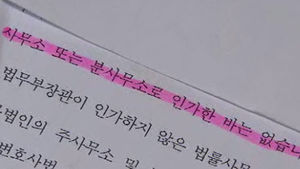 사무소 또는 분사무소로 인가한 바는 없습니
법무부장관이 인가하지 않은 법률사무
법인의 주사무소 및
변호사법